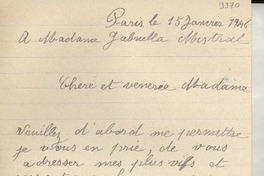 3370
Paris le 15 Janvier 1946
A Madame Gabriella Mistral
Chere et venerée Madame
Veuillez d'abord me permettre
je vous en prie, de vous
adresser mes plus vifs et